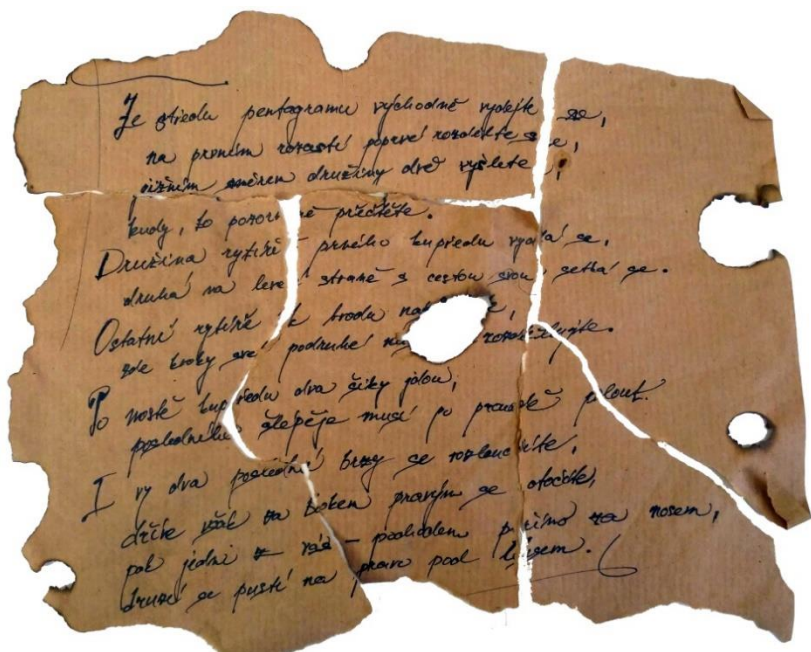 Ze středu pentagramu východně vydejte se,
na prvním rozcestí poprvé rozdělte se,
jižním směrem družiny dvě vyšlete,
kudy, to pozorně přečtěte.
Družina rytířů prvého kupředu vydá se,
druhá na levé straně s cestou svou setká se.
Ostatní rytíře k brodu
zde kroky své podruhé
Po mostě kupředu dva šiky jdou,
posledního šlépěje musí po proudě plout.
I vy dva poslední brzy se rozloučíte,
dříve však za bokem pravým se otočíte,
pak jedni z vás – pochodem přímo za nosem,
druzí se pustí na pravo pod lesem.